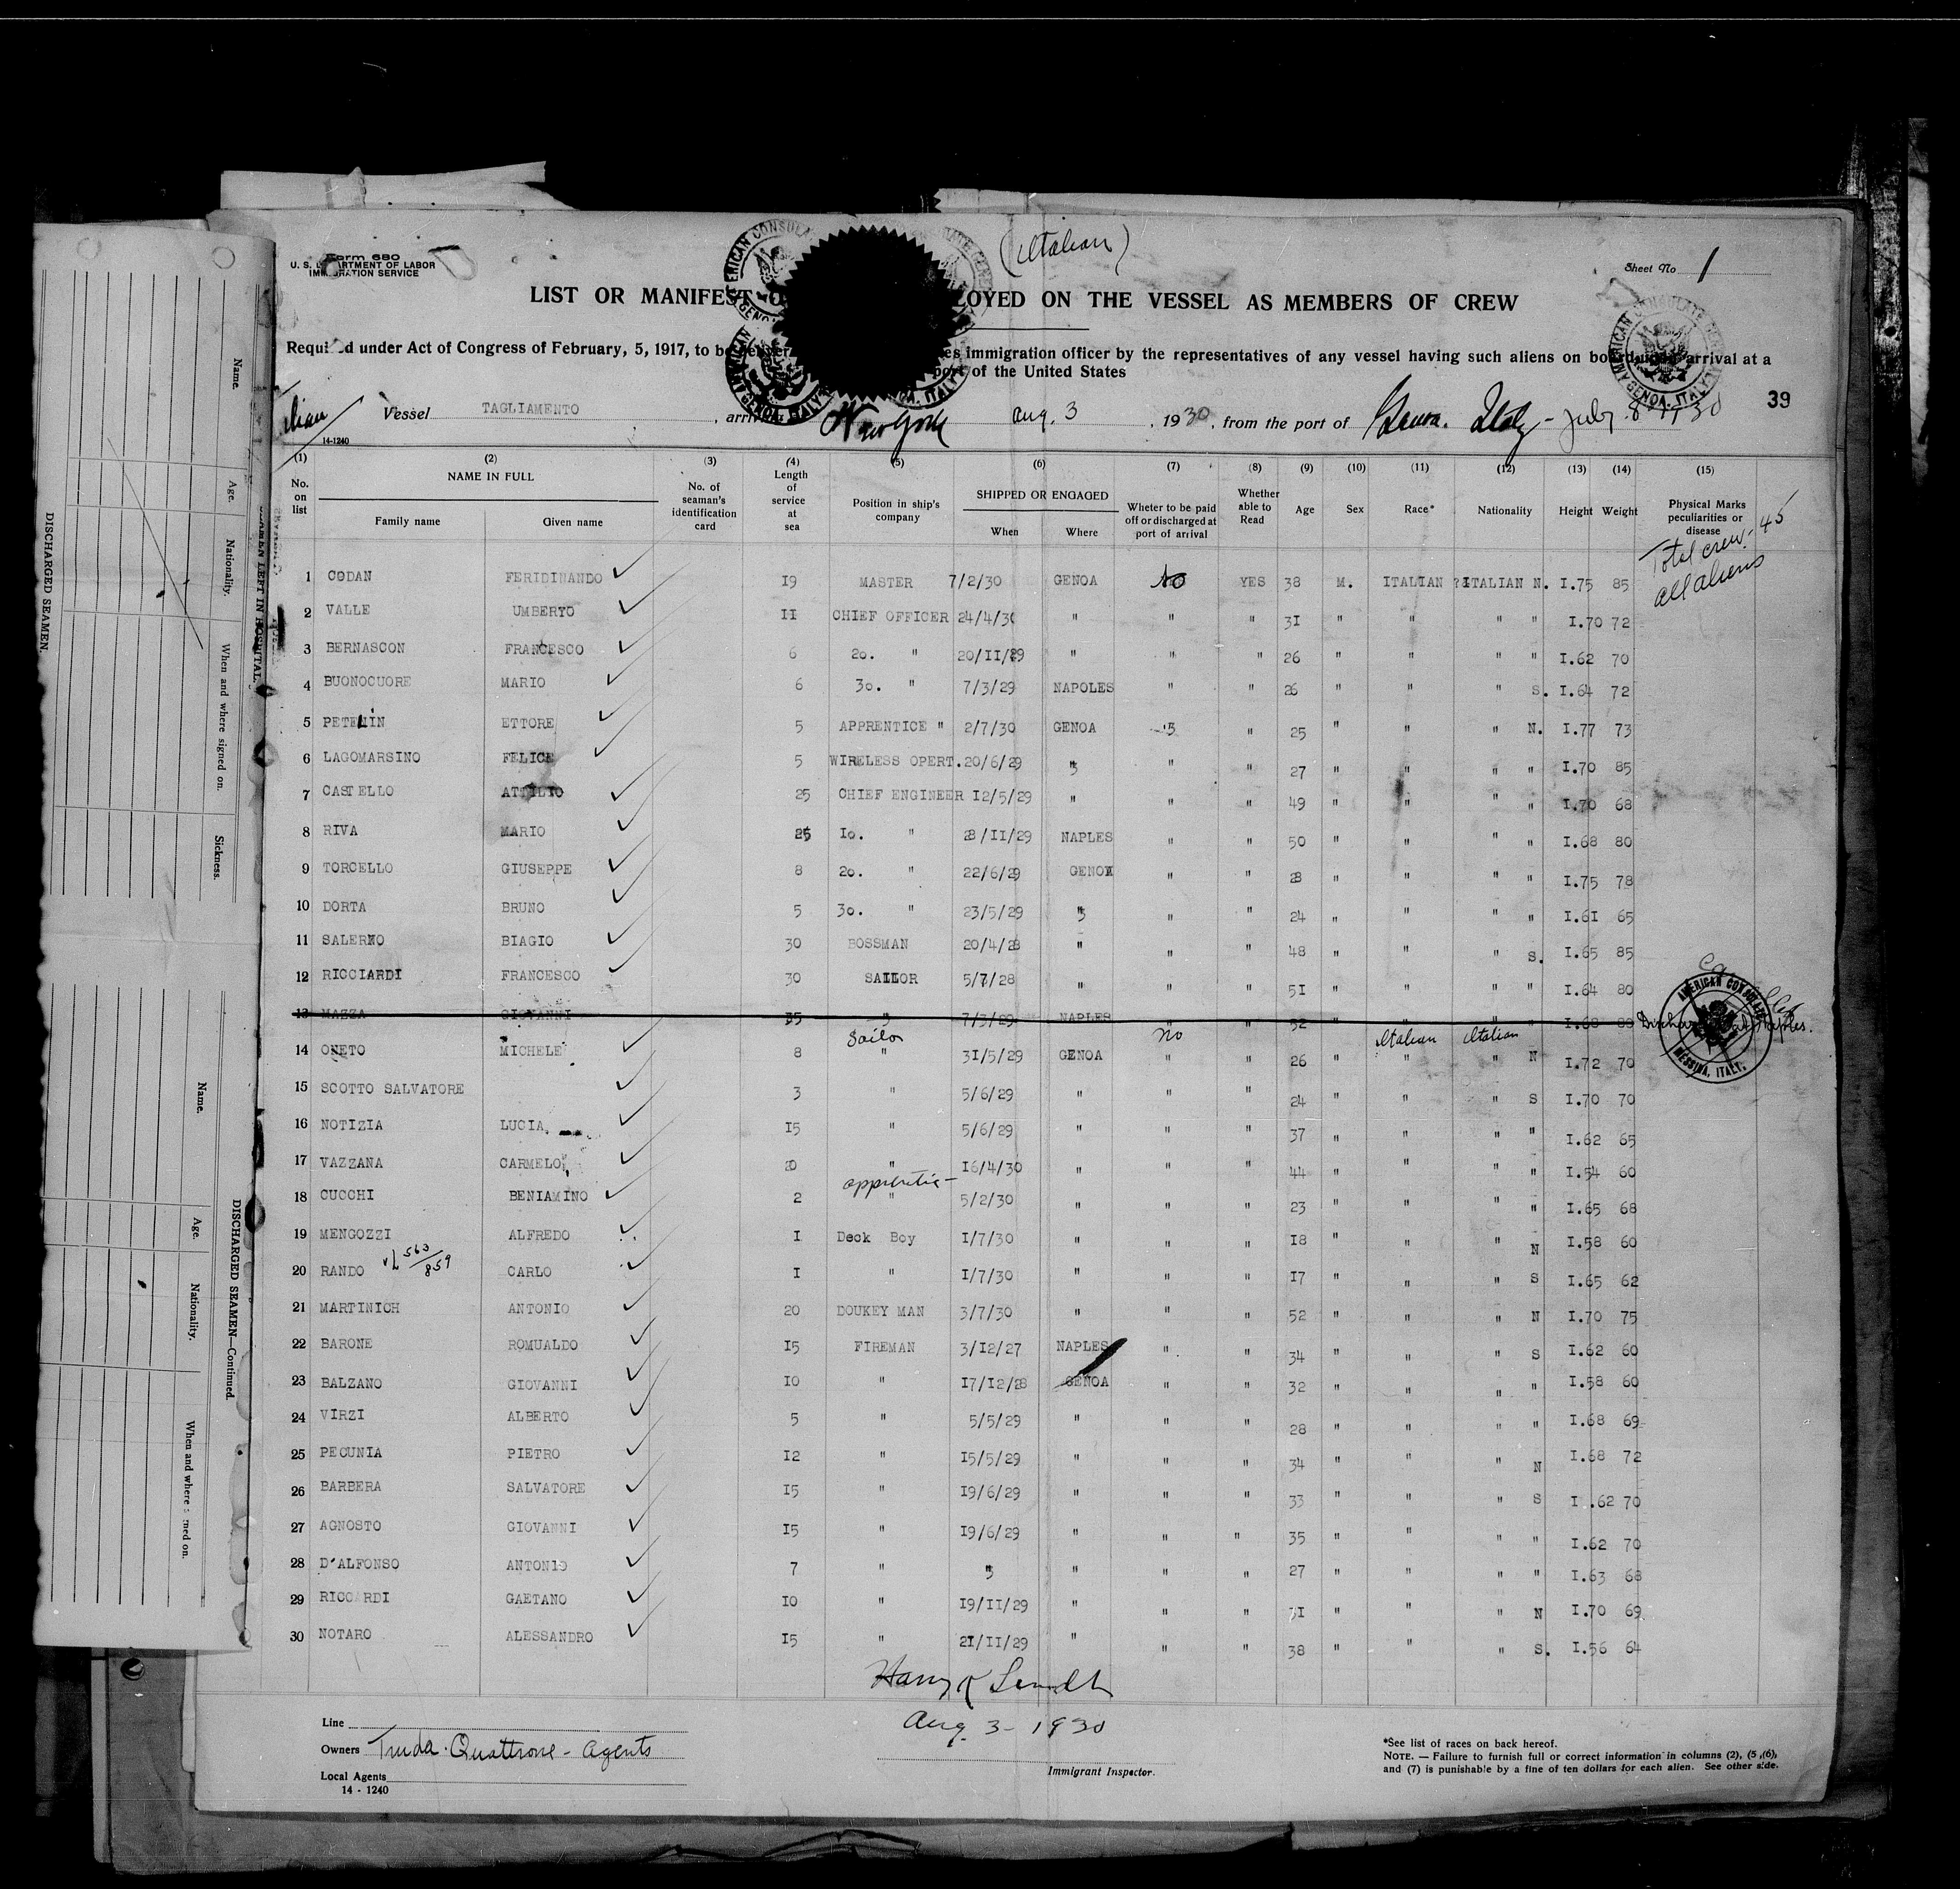 (Italian)
Form 680
U. S. DEPARTMENT OF LABOR
IMMIGRATION SERVICE
Sheet No 1
LIST OR MANIFEST O LOYED ON THE VESSEL AS MEMBERS OF CREW
Required under Act of Congress of February, 5, 1917, to be immigration officer by the representatives of any vessel having such aliens on board upon arrival at a
port of the United States
Vessel TAGLIAMENTO , arriving New York Aug. 3 , 1930, from the port of Genoa. Italy - July 8 1930
39
14-1240
(1) (2) (3) (4) (5) (6) (7) (8) (9) (10) (11) (12) (13) (14) (15)
No. on list NAME IN FULL Family name Given name No. of seaman's identification card Length of service at sea Position in ship's company SHIPPED OR ENGAGED When Where Wheter to be paid off or discharged at port of arrival Whether able to Read Age Sex Race* Nationality Height Weight Physical Marks peculiarities or disease
Total crew - 45
all aliens
1 CODAN FERIDINANDO 19 MASTER 7/2/30 GENOA No YES 38 M. ITALIAN ITALIAN N. I.75 85
2 VALLE UMBERTO II CHIEF OFFICER 24/4/30 " " " 3I " " " " I.70 72
3 BERNASCON FRANCESCO 6 2o. " 20/II/29 " " " 26 " " " " I.62 70
4 BUONOCUORE MARIO 6 3o. " 7/3/29 NAPOLES " " 26 " " " S. I.64 72
5 PETELIN ETTORE 5 APPRENTICE " 2/7/30 GENOA " 25 " " " N. I.77 73
6 LAGOMARSINO FELICE 5 WIRELESS OPERT. 20/6/29 " " " 27 " " " " I.70 85
7 CASTELLO ATTILIO 25 CHIEF ENGINEER I2/5/29 " " " 49 " " " " I.70 68
8 RIVA MARIO 25 Io. " 28/II/29 NAPLES " " 50 " " " " I.68 80
9 TORCELLO GIUSEPPE 8 2o. " 22/6/29 GENOA " " 28 " " " " I.75 78
10 DORTA BRUNO 5 3o. " 23/5/29 " " " 24 " " " " I.6I 65
11 SALERNO BIAGIO 30 BOSSMAN 20/4/28 " " " 48 " " " S. I.65 85
12 RICCIARDI FRANCESCO 30 SAILOR 5/7/28 " " " 5I " " " " I.64 80
13 MAZZA GIOVANNI 35 " 7/3/29 NAPLES " " 52 " " " " I.68 80
AMERICAN CONSULATE MESSINA, ITALY.
Sailor No Italian Italian
14 ONETO MICHELE 8 " 3I/5/29 GENOA " " 26 " " " N I.72 70
15 SCOTTO SALVATORE 3 " 5/6/29 " " " 24 " " " S I.70 70
16 NOTIZIA LUCIA I5 " 5/6/29 " " " 37 " " " " I.62 65
17 VAZZANA CARMELO 20 " I6/4/30 " " " 44 " " " " I.54 60
apprentice -
18 CUCCHI BENIAMINO 2 " 5/2/30 " " " 23 " " " " I.65 68
19 MENGOZZI ALFREDO I Deck Boy I/7/30 " " " I8 " " " N I.58 60
563/859
20 RANDO CARLO I " I/7/30 " " " I7 " " " S I.65 62
21 MARTINICH ANTONIO 20 DOUKEY MAN 3/7/30 " " " 52 " " " N I.70 75
22 BARONE ROMUALDO I5 FIREMAN 3/I2/27 NAPLES " " 34 " " " S I.62 60
23 BALZANO GIOVANNI IO " I7/I2/28 GENOA " " 32 " " " " I.58 60
24 VIRZI ALBERTO 5 " 5/5/29 " " " 28 " " " " I.68 69
25 PECUNIA PIETRO I2 " I5/5/29 " " " 34 " " " N I.68 72
26 BARBERA SALVATORE I5 " I9/6/29 " " " 33 " " " S I.62 70
27 AGNOSTO GIOVANNI I5 " I9/6/29 " " " 35 " " " " I.62 70
28 D'ALFONSO ANTONIO 7 " " " " " 27 " " " " I.63 68
29 RICCARDI GAETANO IO " I9/II/29 " " " 3I " " " N I.70 69
30 NOTARO ALESSANDRO I5 " 2I/II/29 " " " 38 " " " S. I.56 64
Aug. 3 - 1930
Immigrant Inspector.
Line
Owners Truda. Quattrone - agents
Local Agents
14 - 1240
*See list of races on back hereof.
NOTE. — Failure to furnish full or correct information in columns (2), (5,(6),
and (7) is punishable by a fine of ten dollars for each alien. See other side.
DISCHARGED SEAMEN.
Name. Age. Nationality. When and where signed on. Sickness.
SEAMEN LEFT IN HOSPITAL.
DISCHARGED SEAMEN—Continued.
Name. Age. Nationality. When and where signed on.